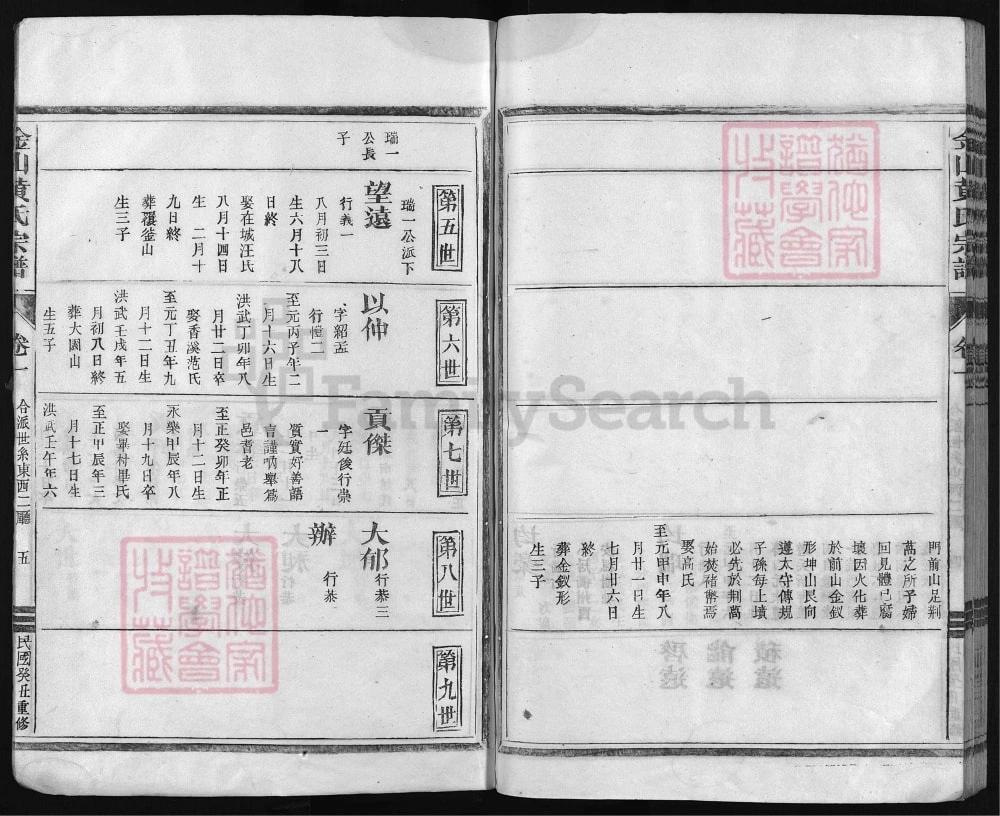 金山黃氏宗譜
卷一
門前山足荆
萬之所予婦
回見體已腐
壞因火化葬
於前山金釵
形坤山艮向
遵太守傳規
子孫每上墳
必先於荆萬
始焚楮幣焉
娶高氏
至元甲申年八
月廿一日生
七月廿六日
終
葬金釵形
生三子
第五世
瑞一公派下
瑞一
公長
子
望遠
行義一
八月初三日
生六月十八
日終
娶在城汪氏
八月十四日
生 二月十
九日終
葬覆釜山
生三子
第六世
以仲
字紹孟
行愷二
至元丙子年二
月十六日生
洪武丁卯年八
月廿二日卒
娶香溪范氏
至元丁丑年九
月十二日生
洪武壬戌年五
月初八日終
葬大園山
生五子
第七世
貢傑
字廷俊行崇
一
質實好善語
言謹吶舉爲
邑耆老
至正癸卯年正
月十二日生
永樂甲辰年八
月十九日卒
娶畢村畢氏
至正甲辰年三
月十七日生
洪武壬午年六
第八世
大郁 行恭三
辦 行恭
第九世
金山黃氏宗譜
卷一
合派世系東西二廳
五
民國癸丑重修
FamilySearch